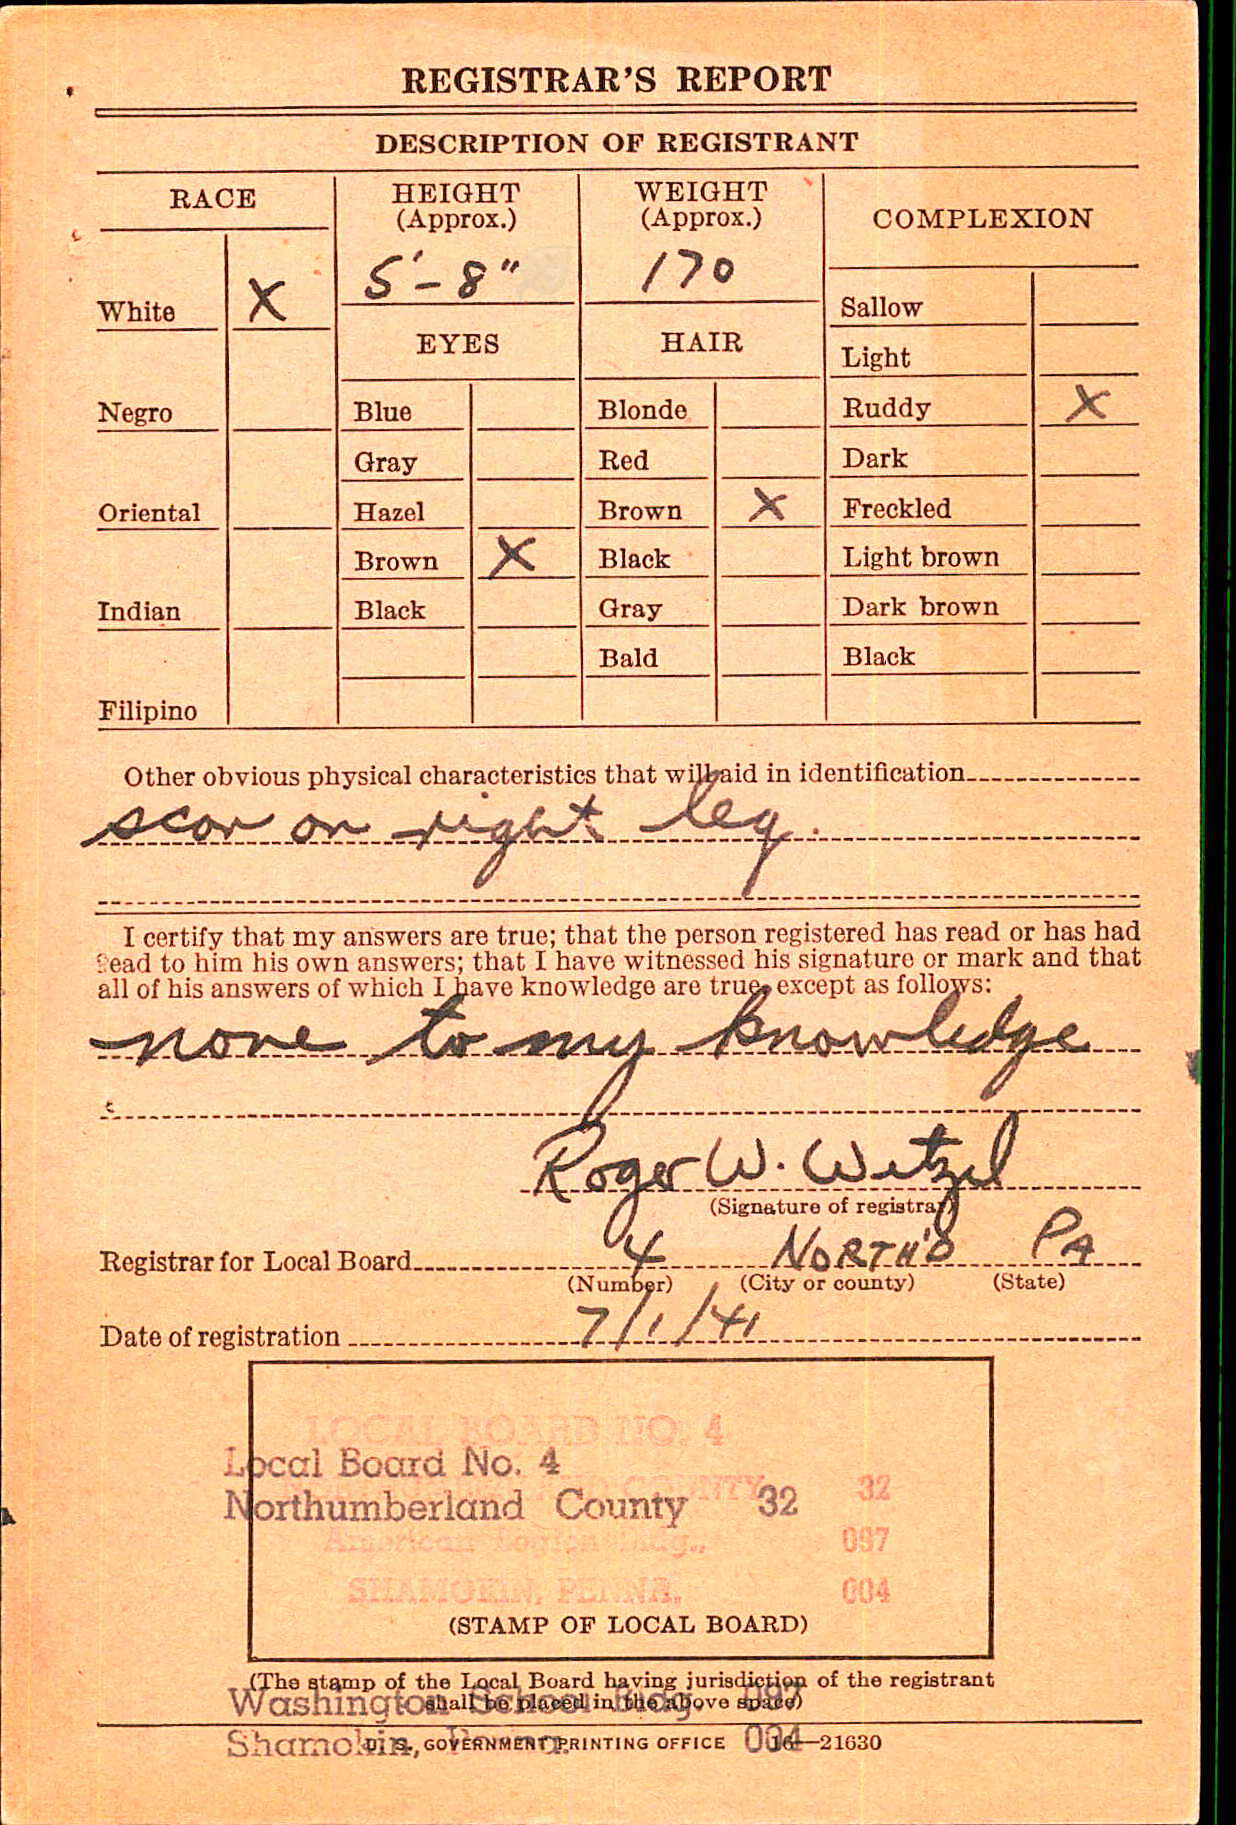 REGISTRAR'S REPORT
DESCRIPTION OF REGISTRANT
RACE
HEIGHT
(Approx.)
WEIGHT
(Approx.)
COMPLEXION
5'-8"
170
White X
Sallow
EYES
HAIR
Light
Negro
Blue
Blonde
Ruddy X
Gray
Red
Dark
Oriental
Hazel
Brown X
Freckled
Brown X
Black
Light brown
Indian
Black
Gray
Dark brown
Bald
Black
Filipino
Other obvious physical characteristics that will aid in identification
scar on right leg.
I certify that my answers are true; that the person registered has read or has had
read to him his own answers; that I have witnessed his signature or mark and that
all of his answers of which I have knowledge are true, except as follows:
none to my knowledge
Roger W. Wetzel
(Signature of registrar)
Registrar for Local Board 4 NORTH'D PA
(Number) (City or county) (State)
Date of registration 7/1/41
LOCAL BOARD NO. 4
Local Board No. 4
COUNTY 32
Northumberland County 32
American Legion Bldg., 097
SHAMOKIN, PENNA. 004
(STAMP OF LOCAL BOARD)
(The stamp of the Local Board having jurisdiction of the registrant
shall be placed in the above space)
Washington School Bldg. 097
Shamokin, Penna. 004
U. S. GOVERNMENT PRINTING OFFICE 16—21630